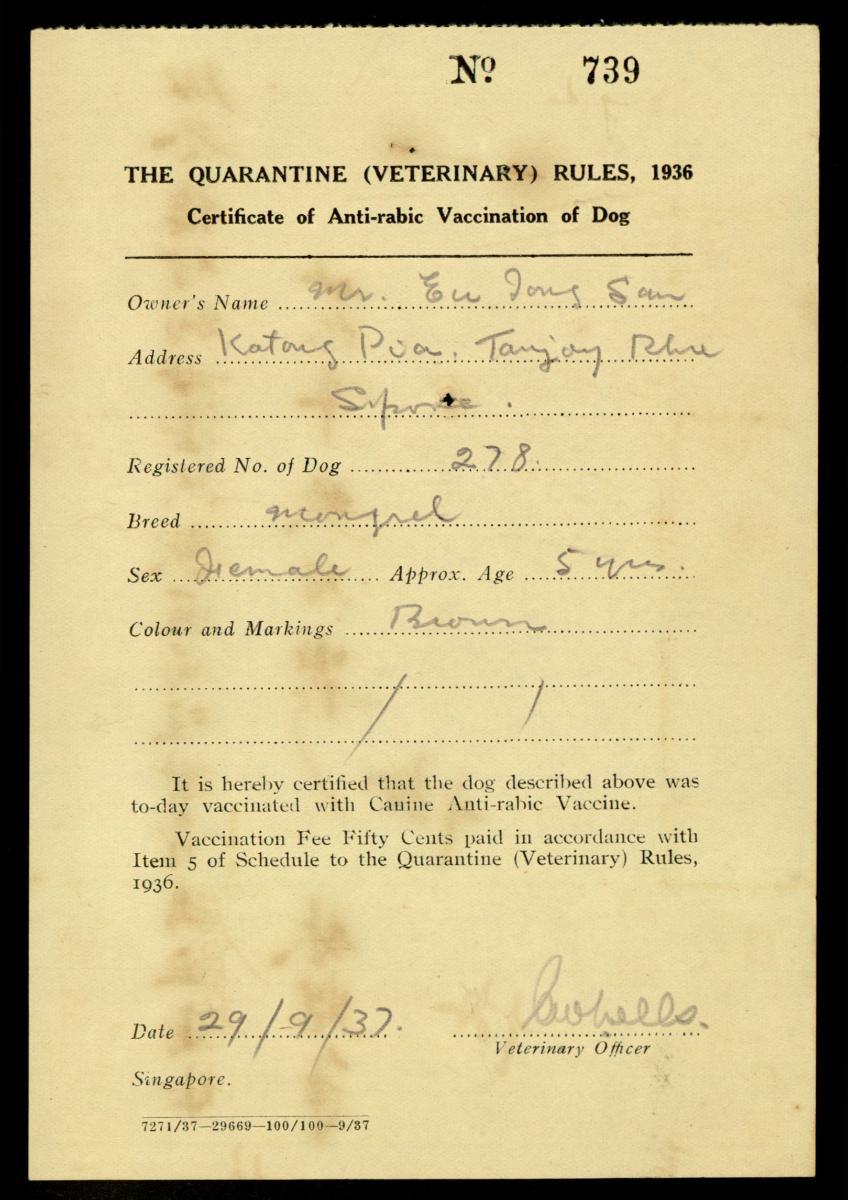 Nº 739
THE QUARANTINE (VETERINARY) RULES, 1936
Certificate of Anti-rabic Vaccination of Dog
Owner's Name Mr. Eu Tong San
Address Katong Tanjong Rhu
S'pore.
Registered No. of Dog 278.
Breed Mongrel
Sex Female Approx. Age 5 yrs.
Colour and Markings Brown
It is hereby certified that the dog described above was
to-day vaccinated with Canine Anti-rabic Vaccine.
Vaccination Fee Fifty Cents paid in accordance with
Item 5 of Schedule to the Quarantine (Veterinary) Rules,
1936.
Date 29/9/37.
Veterinary Officer
Singapore.
7271/37—29669—100/100—9/37